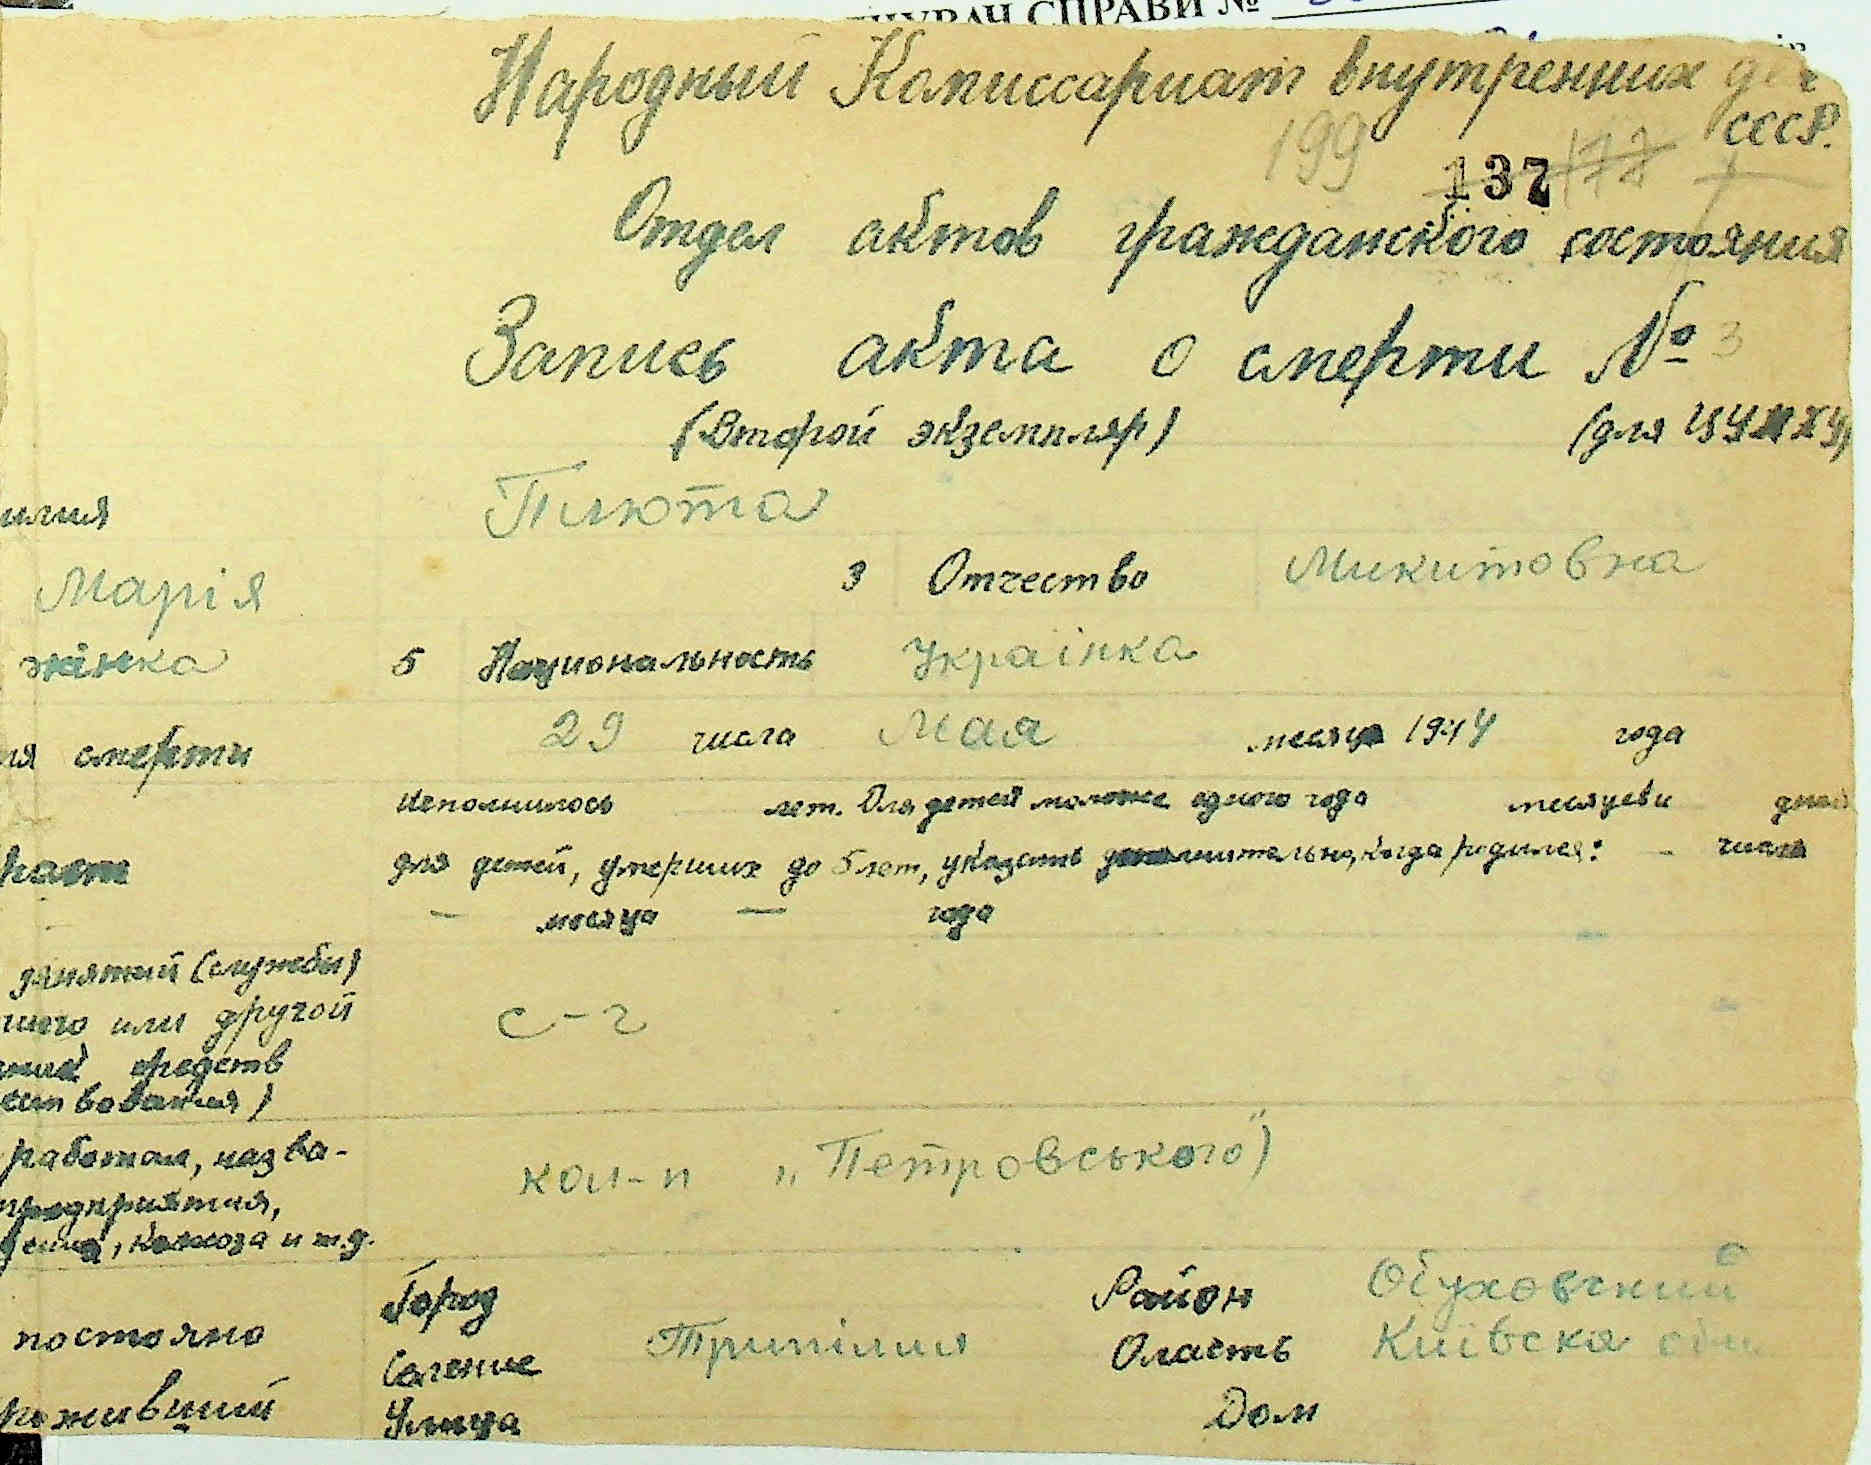 СПРАВИ №
Народный Комиссариат внутренних дел
СССР.
199 137 177
Отдел актов гражданского состояния
Запись акта о смерти № 3
(Второй экземпляр) (для ЦУНХУ)
милия Плюта
Марія 3 Отчество Микитовна
жінка 5 Национальность Українка
ия смерти 29 числа Мая месяца 1944 года
Исполнилось лет. Для детей моложе одного года месяцев и дней
раст для детей, умерших до 5 лет, указать дополнительно, когда родился: - числа
— месяца — года
занятий (службы)
шего или другой с-г
средств
ествования)
работал, назва-
предприятия, кол-п „Петровського")
колхоза и т.д.
Город Район Обуховский
постояно Селение Трипілля Оласть Київска обл.
роживший Улица Дом